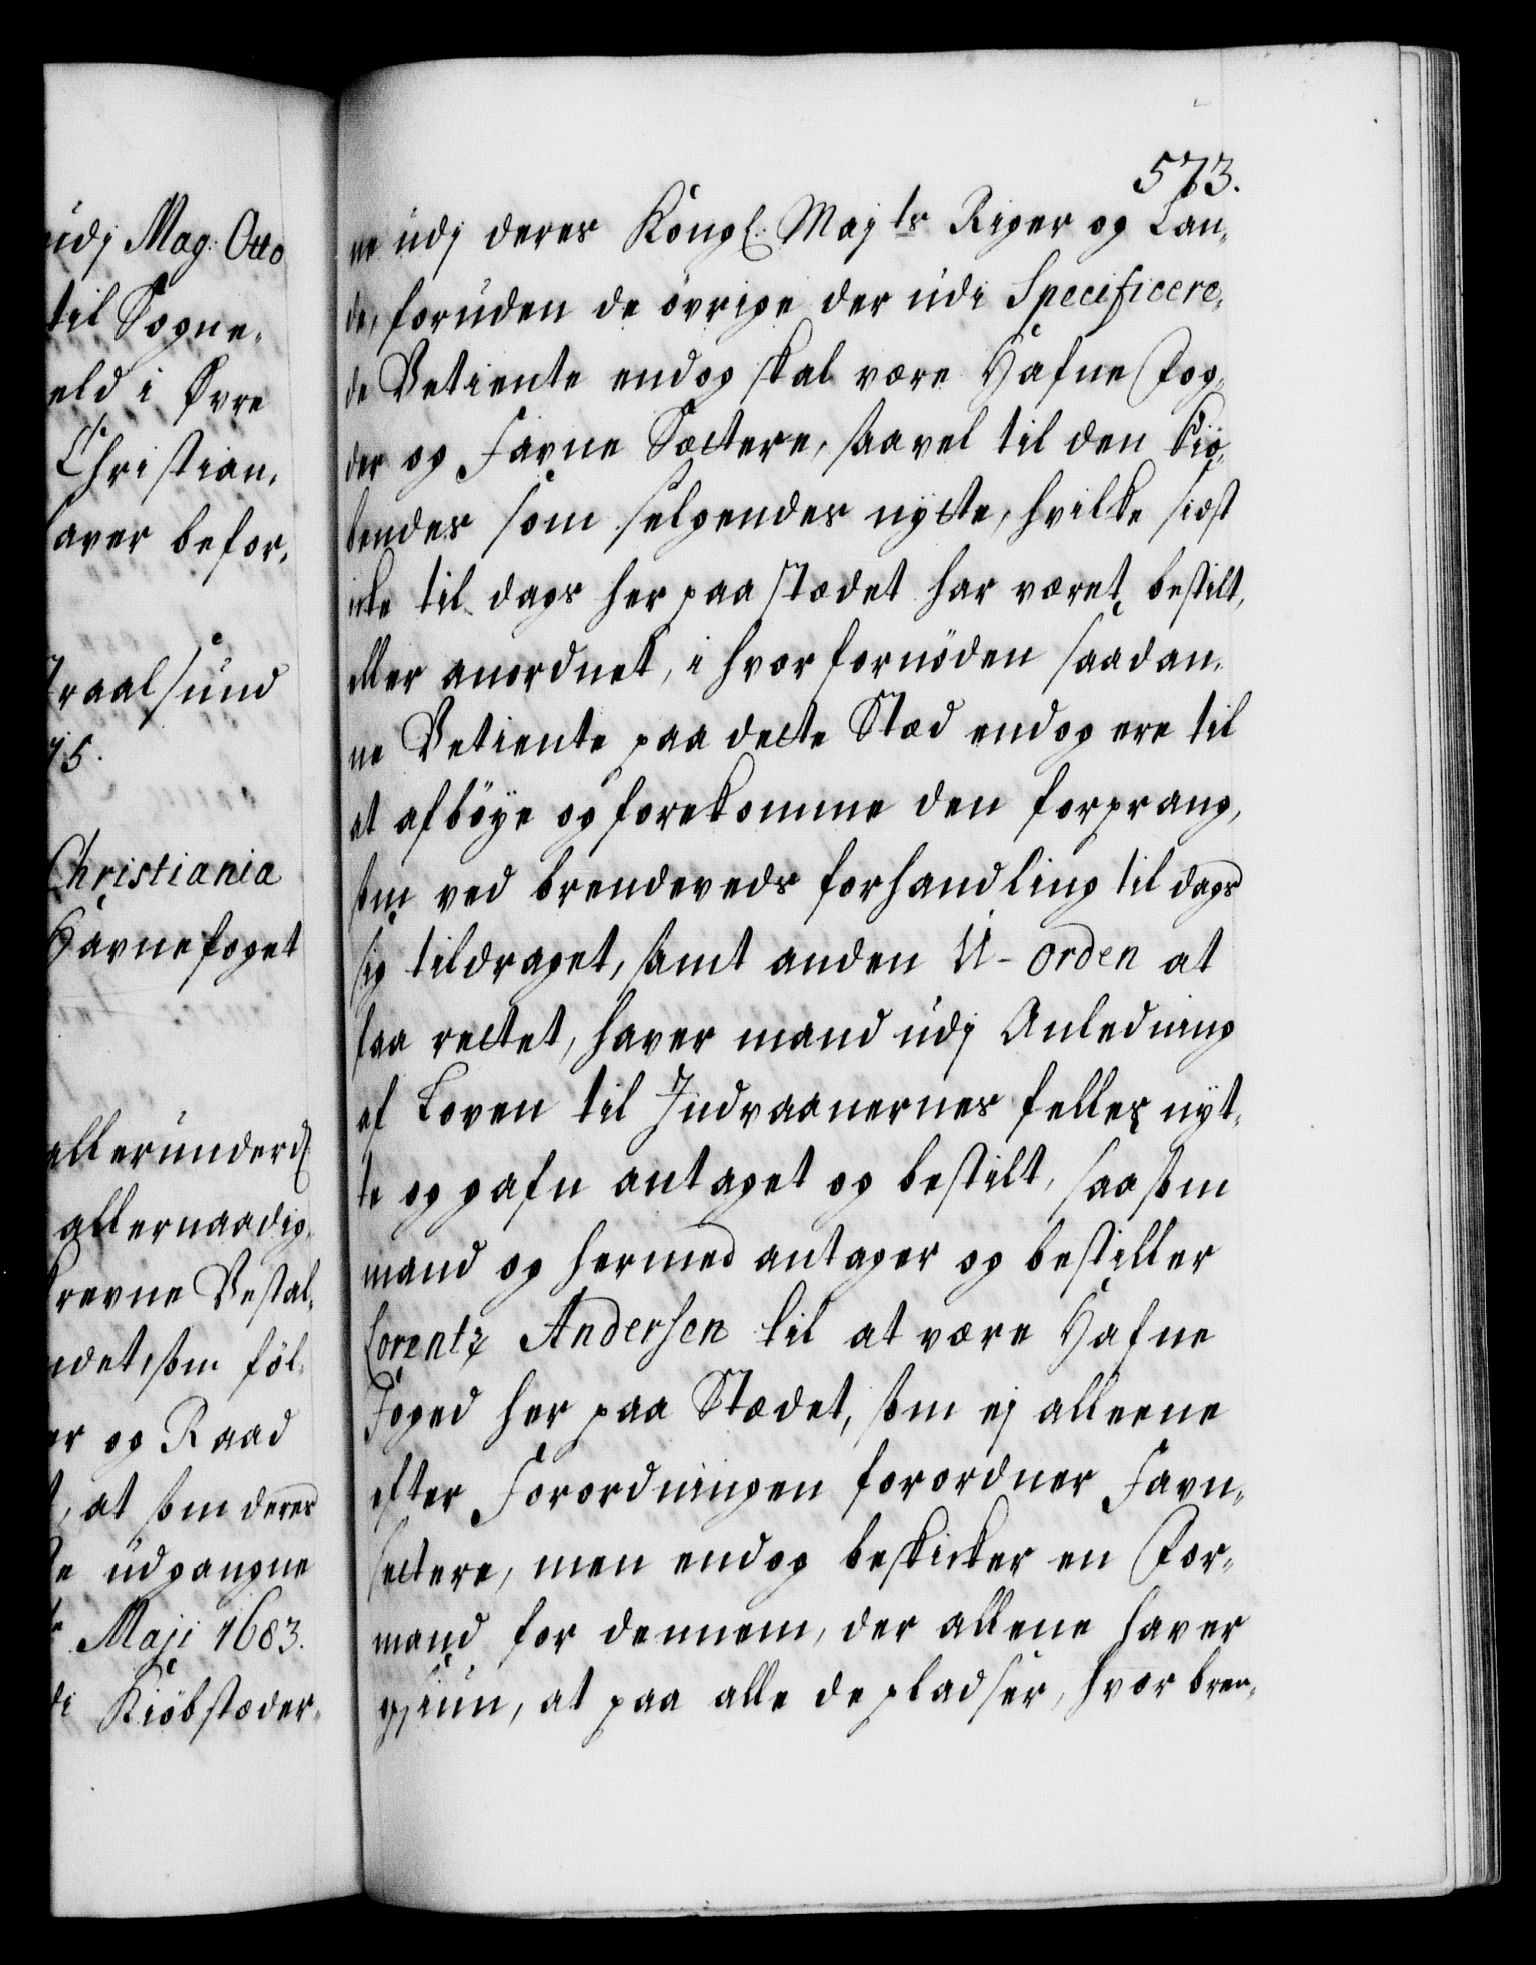 udj Mag: Otto
til Sogne-
eld i Øvre
Christian-
aver befor-
raalsund
75.
Christiania
Havnefoget
allerunderd
allernaadig-
revne Bestal-
ndet, som föl-
er og Raad
, at som deres
udgangne
Maji 1683.
di Kiöbstæder-
573.
ne udj deres Kongl: Majts Riger og Lan-
de, foruden de övrige der udi Specificere-
de Betiente endog skal være Hafne Fog-
der og Favne Sættere, saavel til den kiö-
bendes som selgendes nÿtte, hvilke sidst
icke til dags her paa stædet har været bestilt,
eller anordnet, i hvor fornöden saadan-
ne Betiente paa dette Stæd endog ere til
at afböye og forekomme den forprang,
som ved brendeveds forhandling til dags
sig tildraget, samt anden U-orden at
faa rettet, haver mand udj Anledning
af Loven til Indvaanernes felles nÿt-
te og gafn antaget og bestilt, saasom
mand og hermed antager og bestiller
Lorentz Andersen til at være Hafne
Foged her paa Stædet, som ej alleene
efter Forordningen forordner Favn-
settere, men endog beskicker en For-
mand for dennem, der allene haver
opsiun, at paa alle de pladser, hvor bren-